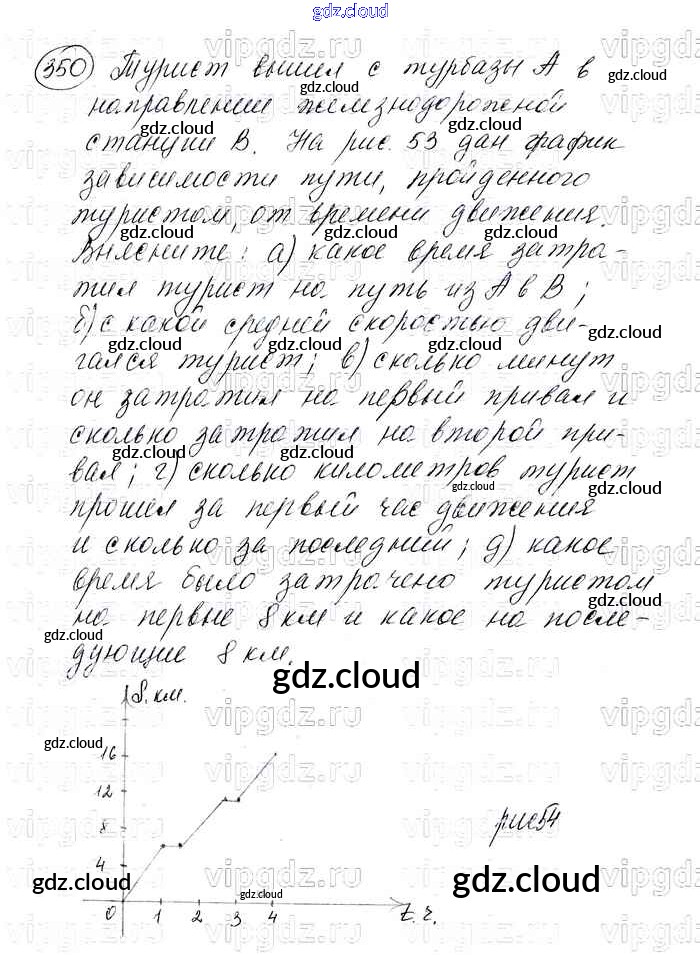 gdz.cloud
350 Турист вышел с турбазы А в
направлении железнодорожной
станции В. На рис. 53 дан график
зависимости пути, пройденного
туристом, от времени движения.
Выясните: а) какое время затра-
тил турист на путь из А в В;
б) с какой средней скоростью дви-
гался турист; в) сколько минут
он затратил на первый привал и
сколько затратил на второй при-
вал; г) сколько километров турист
прошел за первый час движения
и сколько за последний; д) какое
время было затрачено туристом
на первые 8 км и какое на после-
дующие 8 км.
gdz.cloud
S, км.
16
12
8
4
0 1 2 3 4 t. г.
рис 54
gdz.cloud
vipgdz.ru